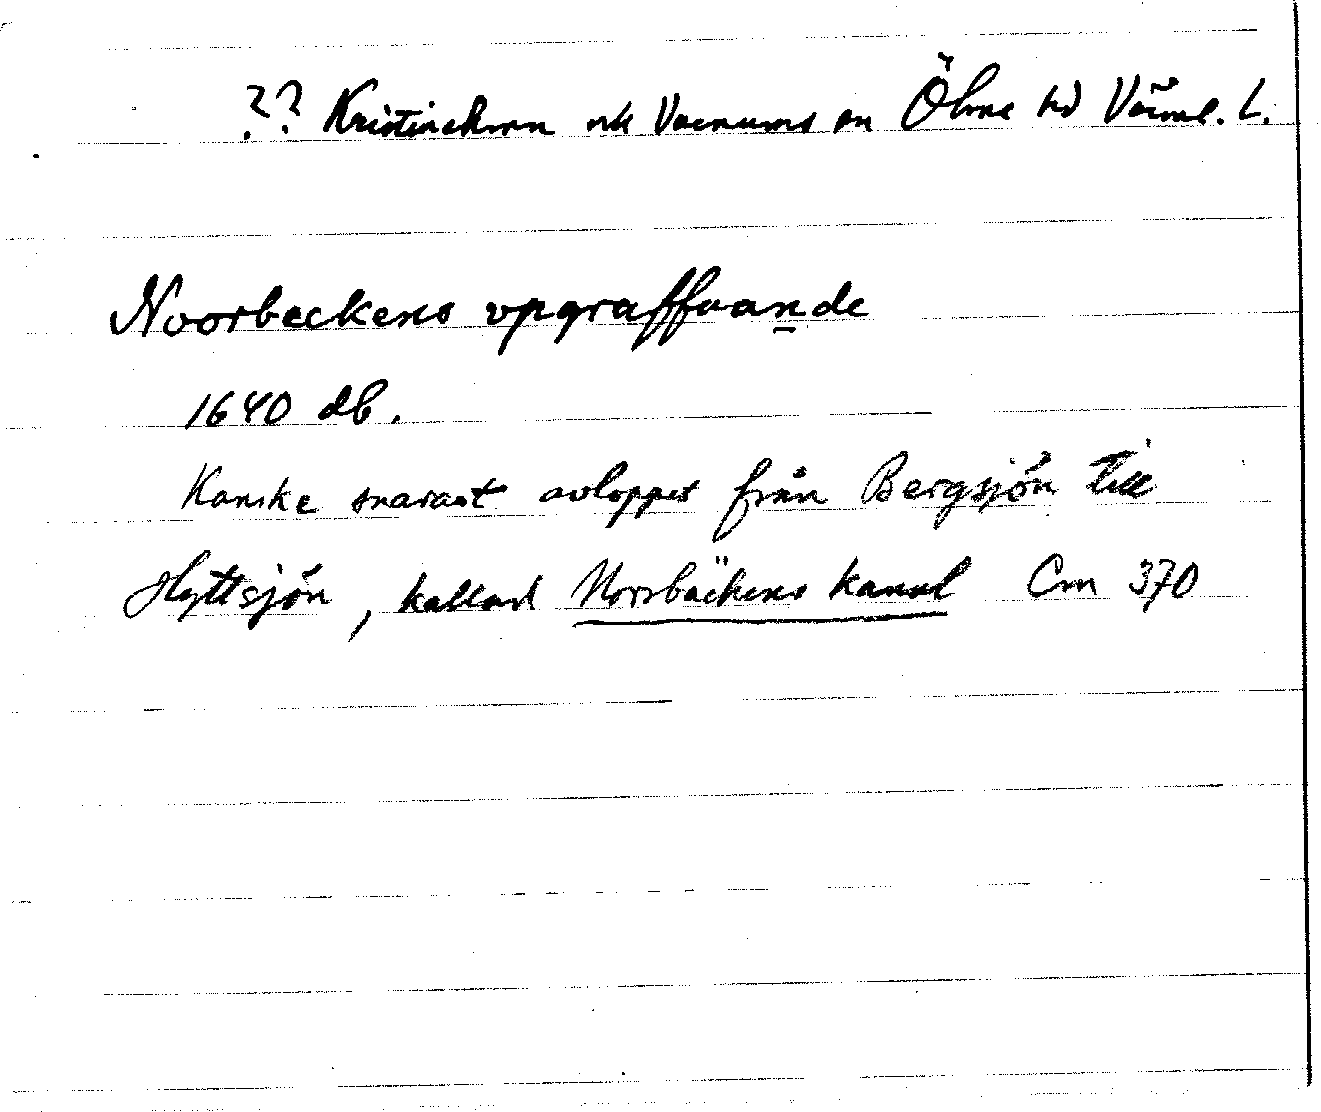 ?? Kristinehamn och Varnums sn Ölme hd Värml. L.
Noorbeckens vpgraffuande
1640 db.
Kanske snarast avloppet från Bergsjön till
Hyttsjön, kallad Norrbäckens kanal Cm 370